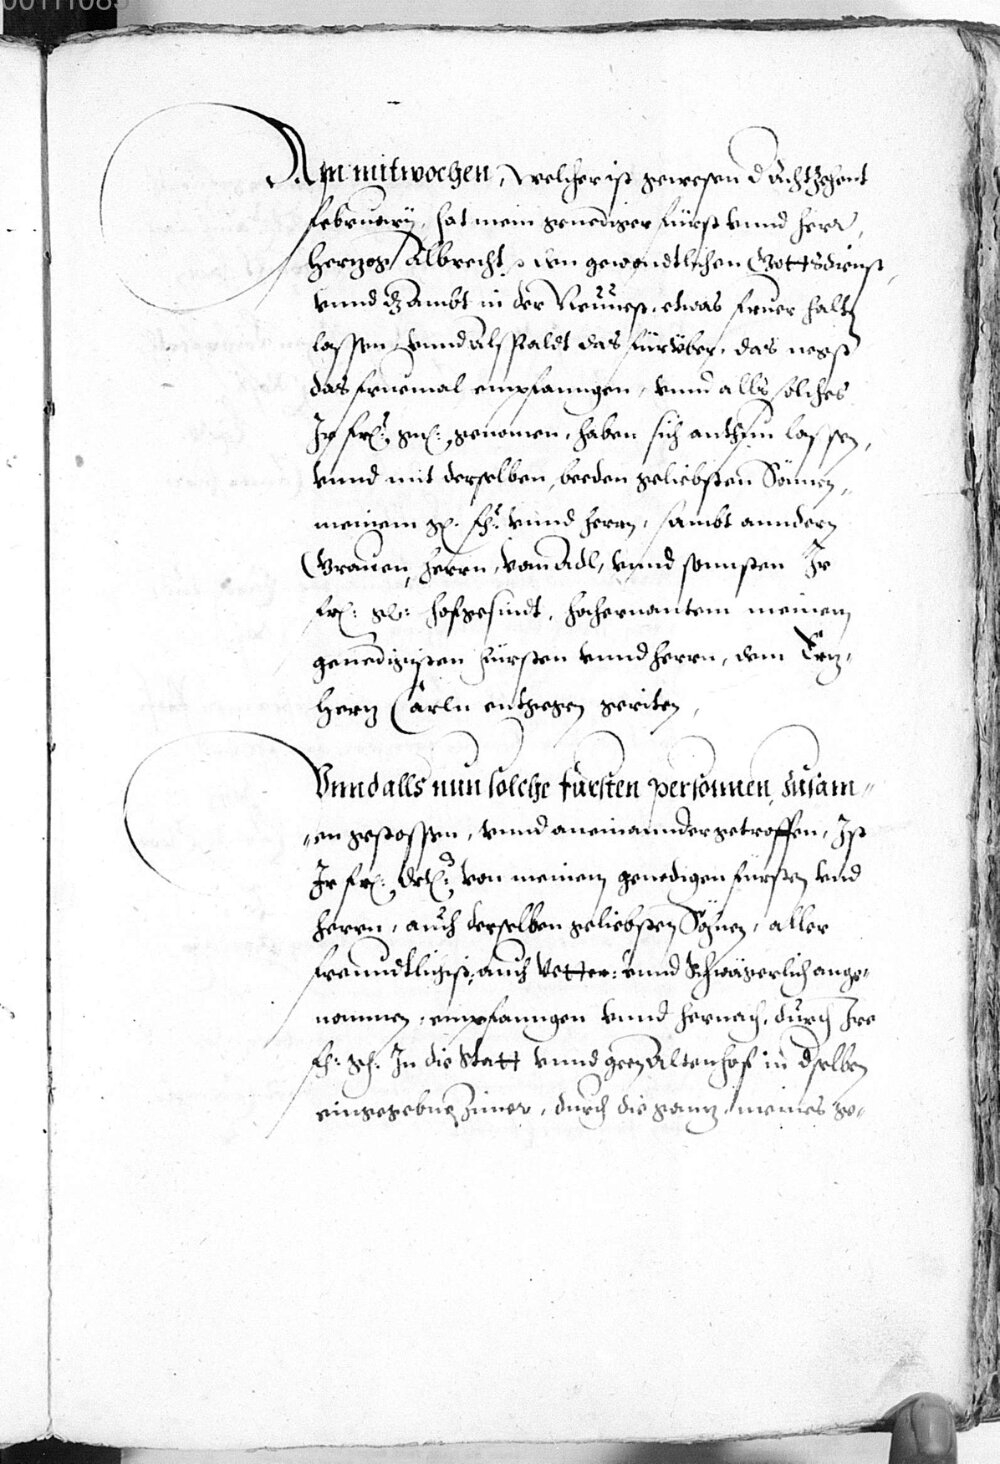 00111085
Am mitwochen, welcher ist gewesen d Achtzehent
februarij, hat mein genediger fürst vnnd herr,
Hertzog Albrecht, den gewondtlichen Gottsdienst,
vnnd dz Ambt in der Neuuest, etwas frueer haltn
lassen, vnnd alspaldt das fürüber, das negst
das fruemal empfanngen, vnnd alls solches
Ir frl: gn: genomen, haben sich anthun lassen,
vnnd mit derselben, beeden geliebsten Sönnen,
meinem g. fh: vnnd herrn, sambt anndern
Grauen, herrn, vom Adl, vnnd sonnsten Ir
frl: gl: hofgesindt, hochernantem meinem
genedigisten fürsten vnnd herrn, dem Ertz-
Hertz Carln entgegen geriten,
Vnnd alls nun solche fürsten personnen, zusam=
=en gestossen, vnnd aneinannder getroffen, Ist
Ir frl: drl: von meinem genedigen fürsten vnd
herrn, auch derselben geliebsten Sönen, aller
freundtlichist, auch Vetter: vnnd Schwägerlich ange=
nommen, empfanngen vnnd hernach, durch Ire
fh: gh: In die Statt vnnd geen Altenhof in dselben
eingegebne Zimer, durch die gantz, meines ge=